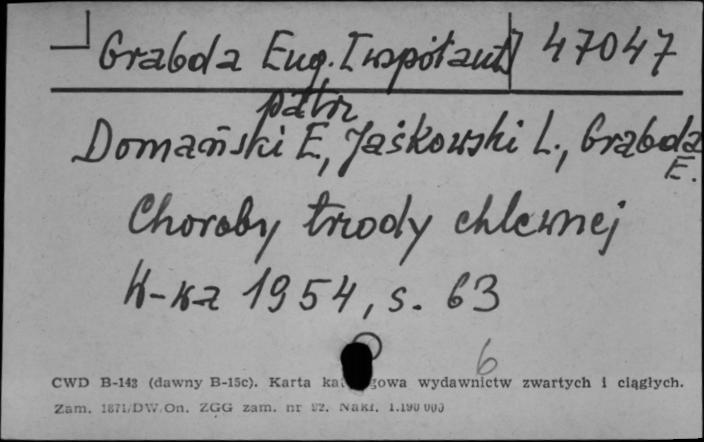 Grabda Eug. [współaut] 47047
patrz
Domański E, Jaśkowski L., Grabda E.
Choroby trzody chlewnej
K-ka 1954, s. 63
6
CWD B-143 (dawny B-15c). Karta katalogowa wydawnictw zwartych i ciągłych.
Zam. 1871/DW/On. ZGG zam. nr 92. Nakł. 1.190 000